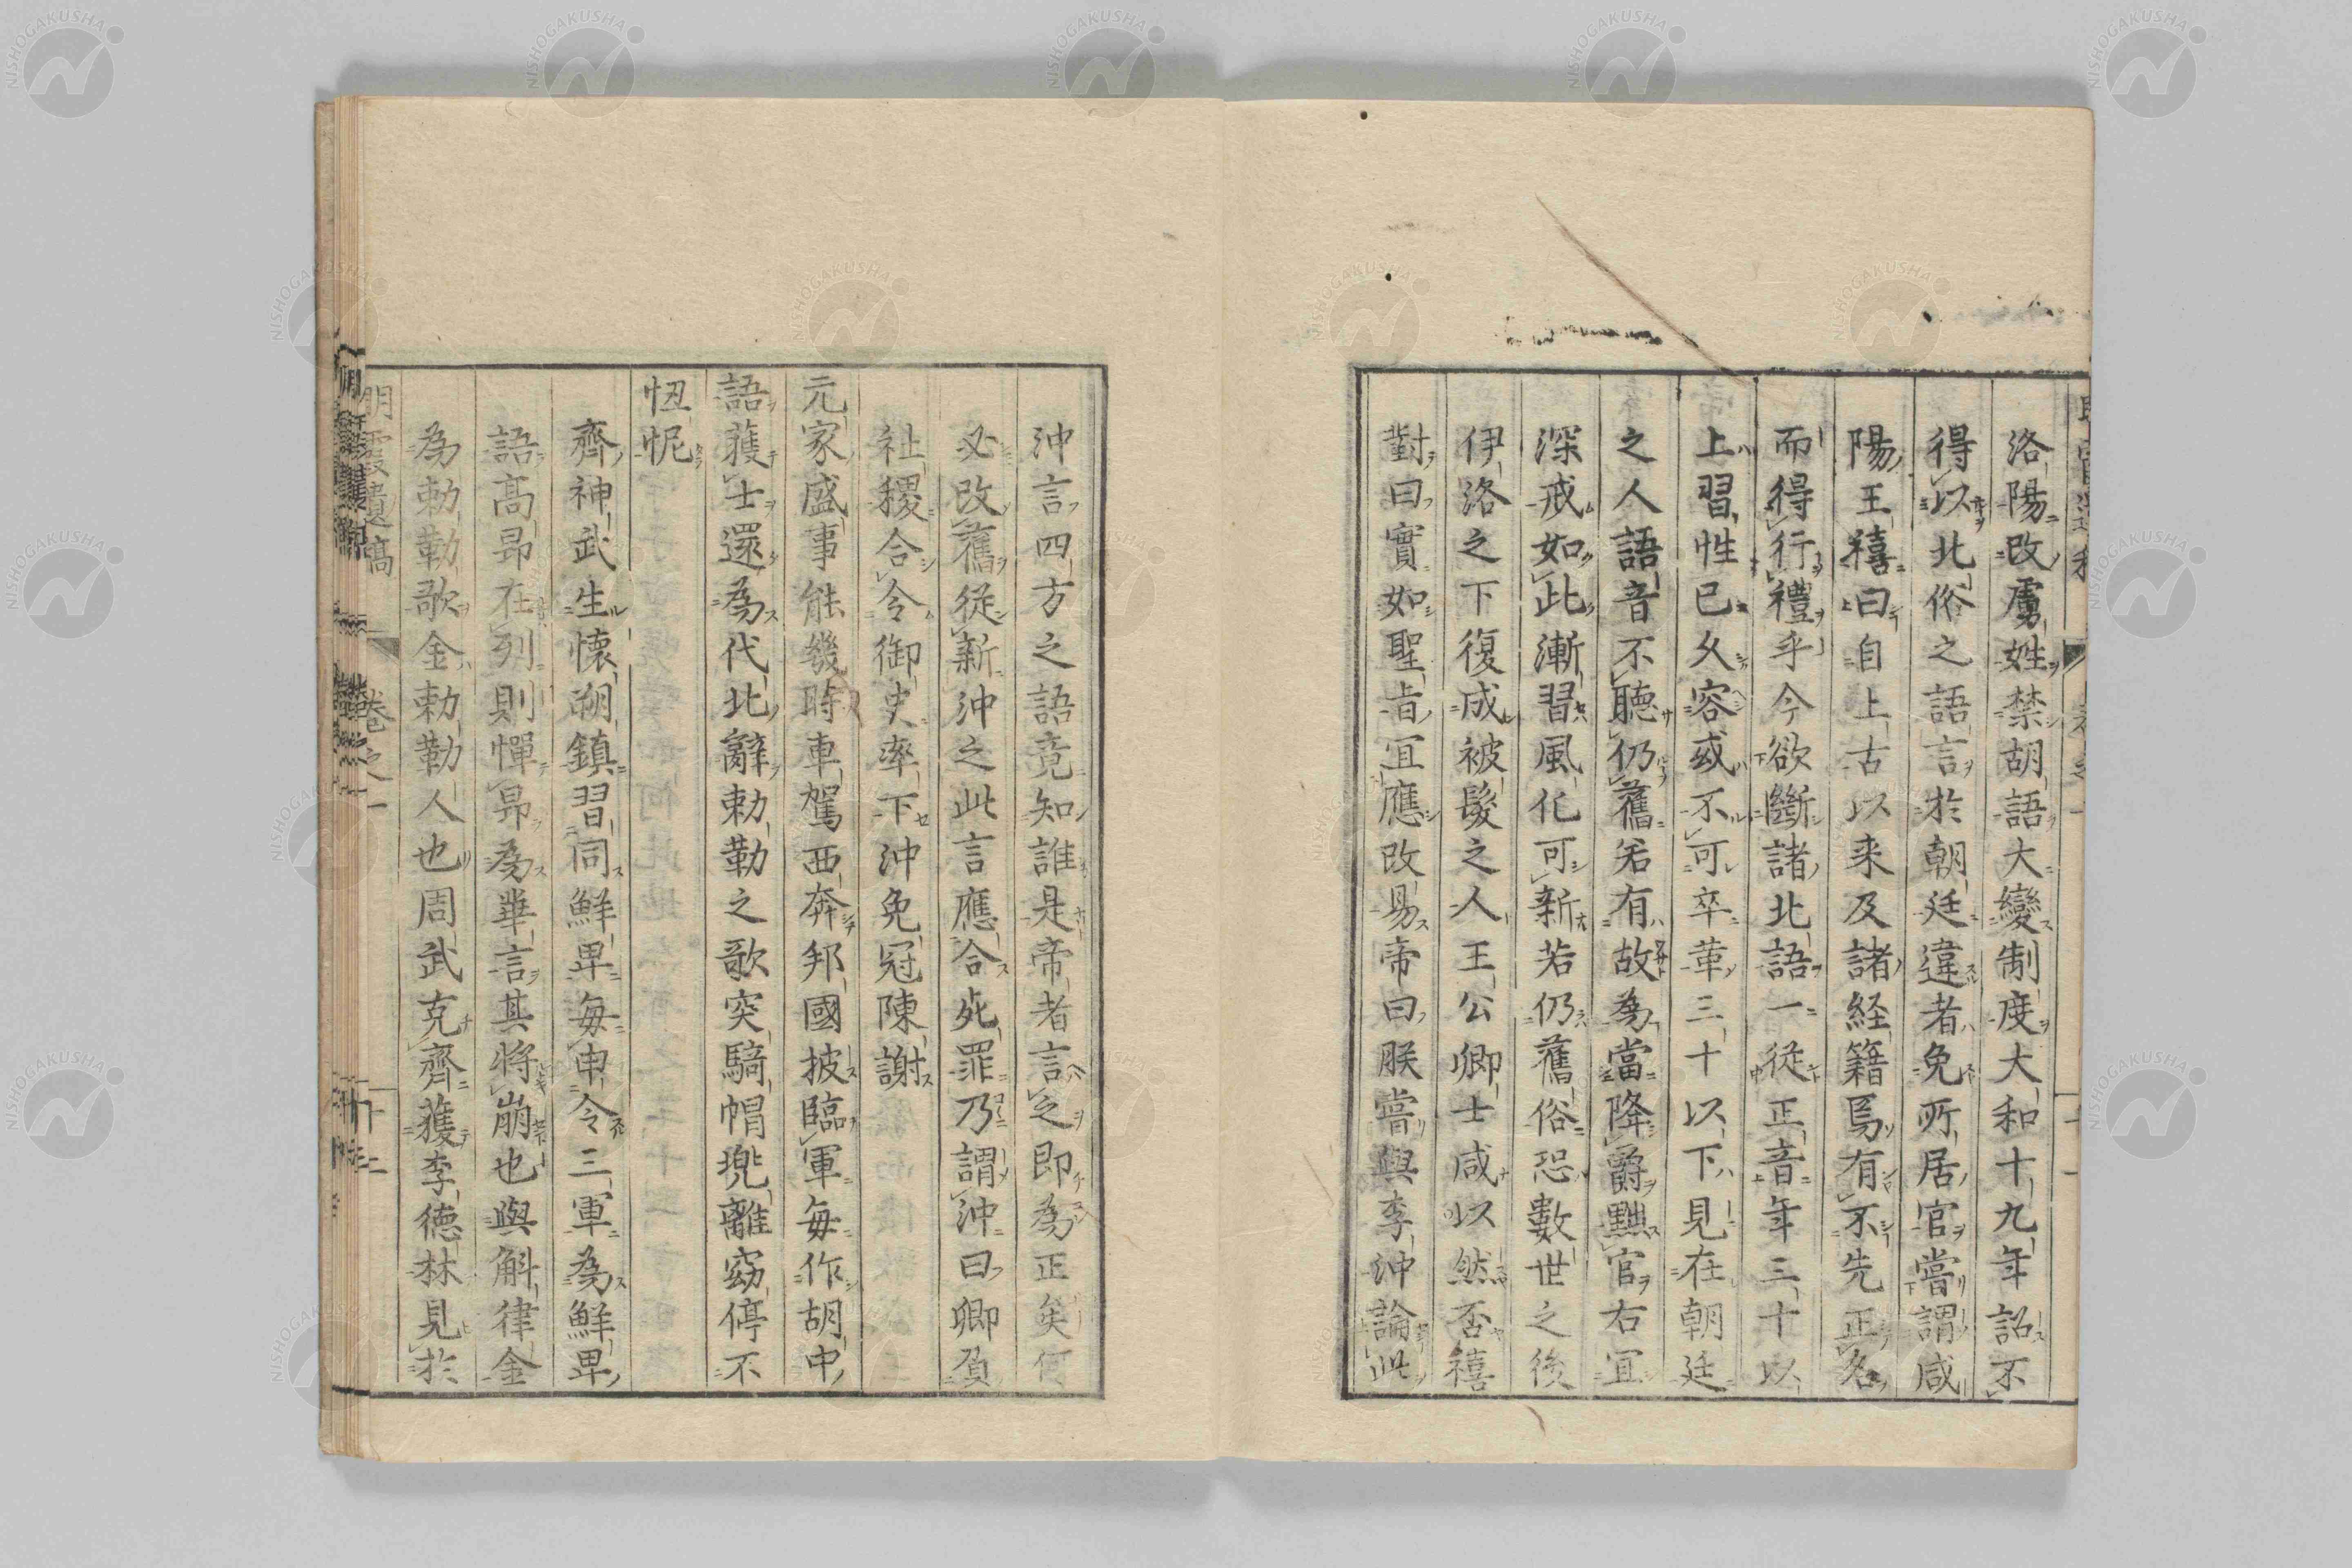 洛陽改虜姓禁胡語大變制度大和十九年詔不
得以北俗之語言於朝廷違者免所居官嘗謂咸
陽王禧曰自上古以来及諸経籍焉有不先正名
而得行禮乎今欲斷諸北語一從正音年三十以
上習性已久容或不可卒革三十以下見在朝廷
之人語音不聽仍舊若有故為當降爵黜官右宜
深戒如此漸習風化可新若仍舊俗恐數世之後
伊洛之下復成被髮之人王公卿士咸以然否禧
對曰實如聖旨宜應改易帝曰朕嘗與李沖論此
沖言四方之語竟知誰是帝者言之即為正矣何
必改舊從新沖之此言應合死罪乃謂沖曰卿負
社稷合令御史牽下沖免冠陳謝
元家盛事能幾時車駕西奔邦國披臨軍毎作胡中
語獲士還為代北辭勅勒之歌突騎帽兜離窈停不
忸怩
齊神武生懐朔鎮習同鮮卑毎申令三軍為鮮卑
語高昴在列則憚昴為華言其将崩也與斛律金
為勅勒歌金勅勒人也周武克齊獲李德林見於
明霞遺稿 卷之一 十二
NISHOGAKUSHA